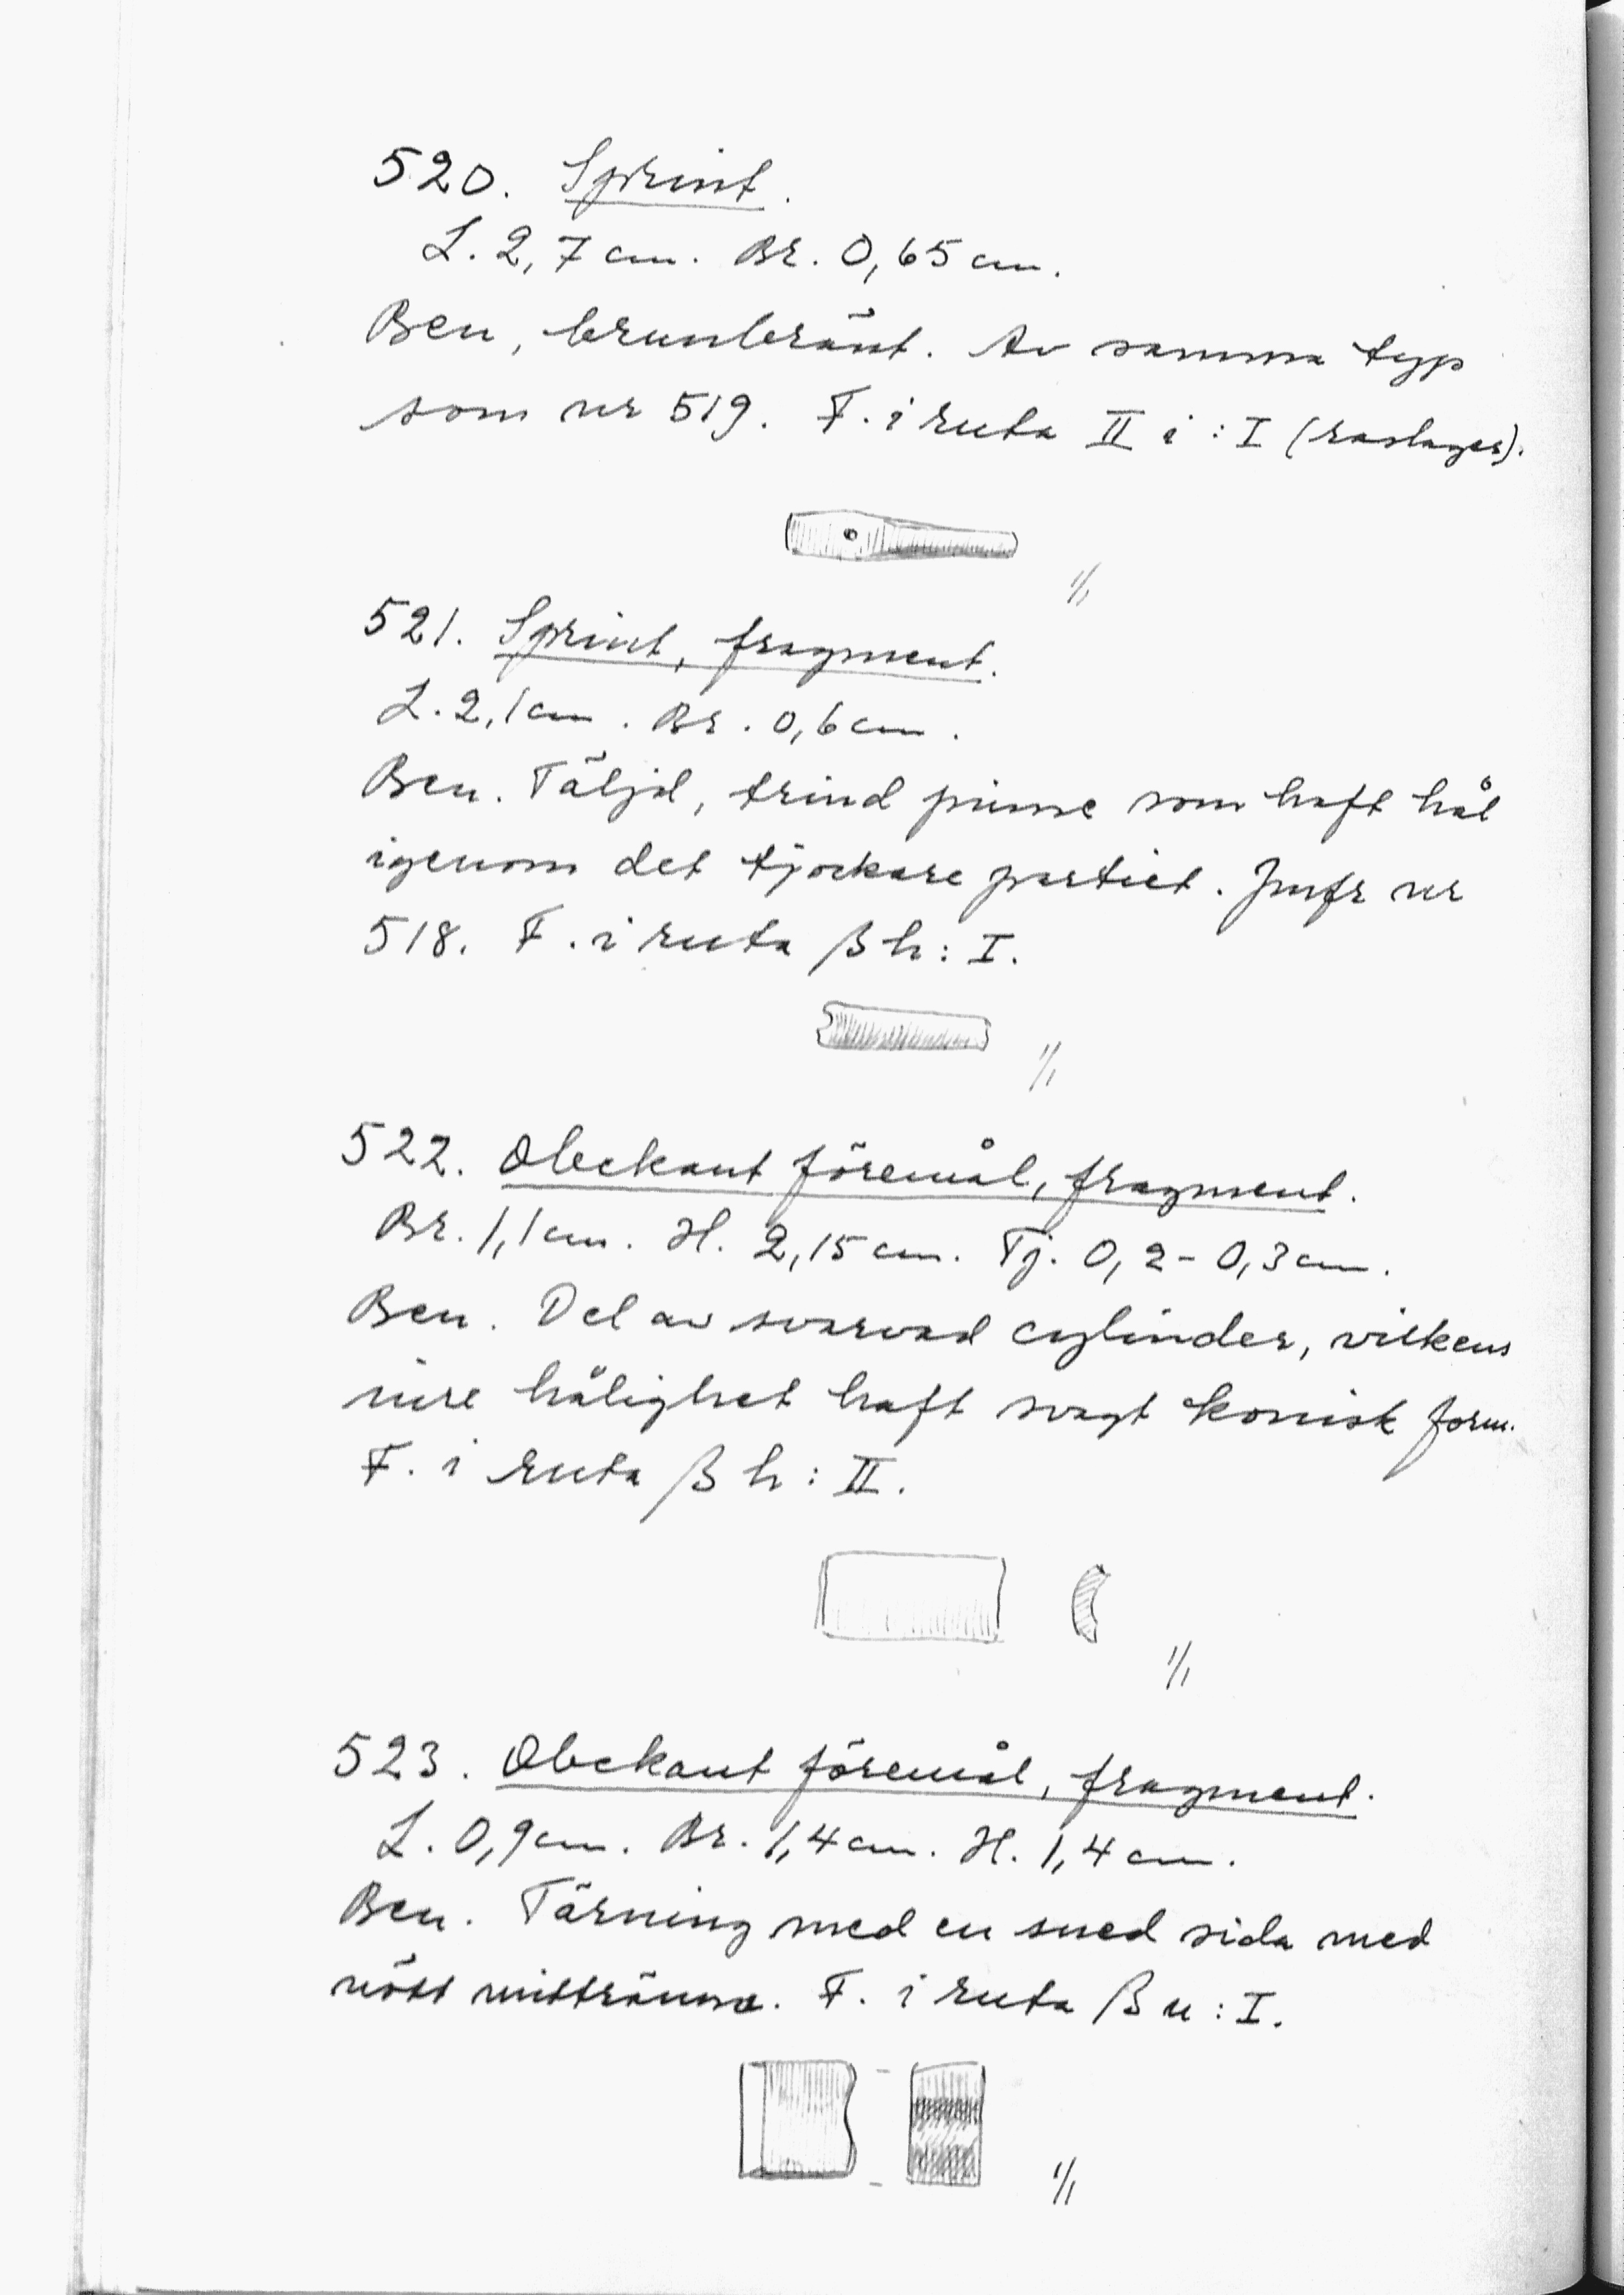 520. Sprint.
L. 2,7 cm. Br. 0,65 cm.
Ben, brunbränt. Av samma typ
som nr 519. F. i ruta II i : I (raslager).
1/1
521. Sprint, fragment.
L. 2,1 cm. Br. 0,6 cm.
Ben. Täljd, trind pinne som haft hål
igenom det tjockare partiet. Jmfr nr
518. F. i ruta β h : I.
1/1
522. Obekant föremål, fragment.
Br. 1,1 cm. H. 2,15 cm. Tj. 0,2 - 0,3 cm.
Ben. Del av svarvad cylinder, vilkens
inre hålighet haft svagt konisk form.
F. i ruta β h : II.
1/1
523. Obekant föremål, fragment.
L. 0,9 cm. Br. 1,4 cm. H. 1,4 cm.
Ben. Tärning med en sned sida med
nött mittränna. F. i ruta β u : I.
1/1